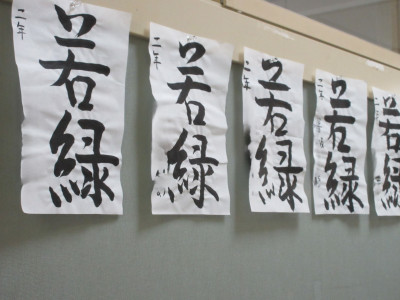 若緑
二年
若緑
二年
若緑
二年
若緑
二年
若緑